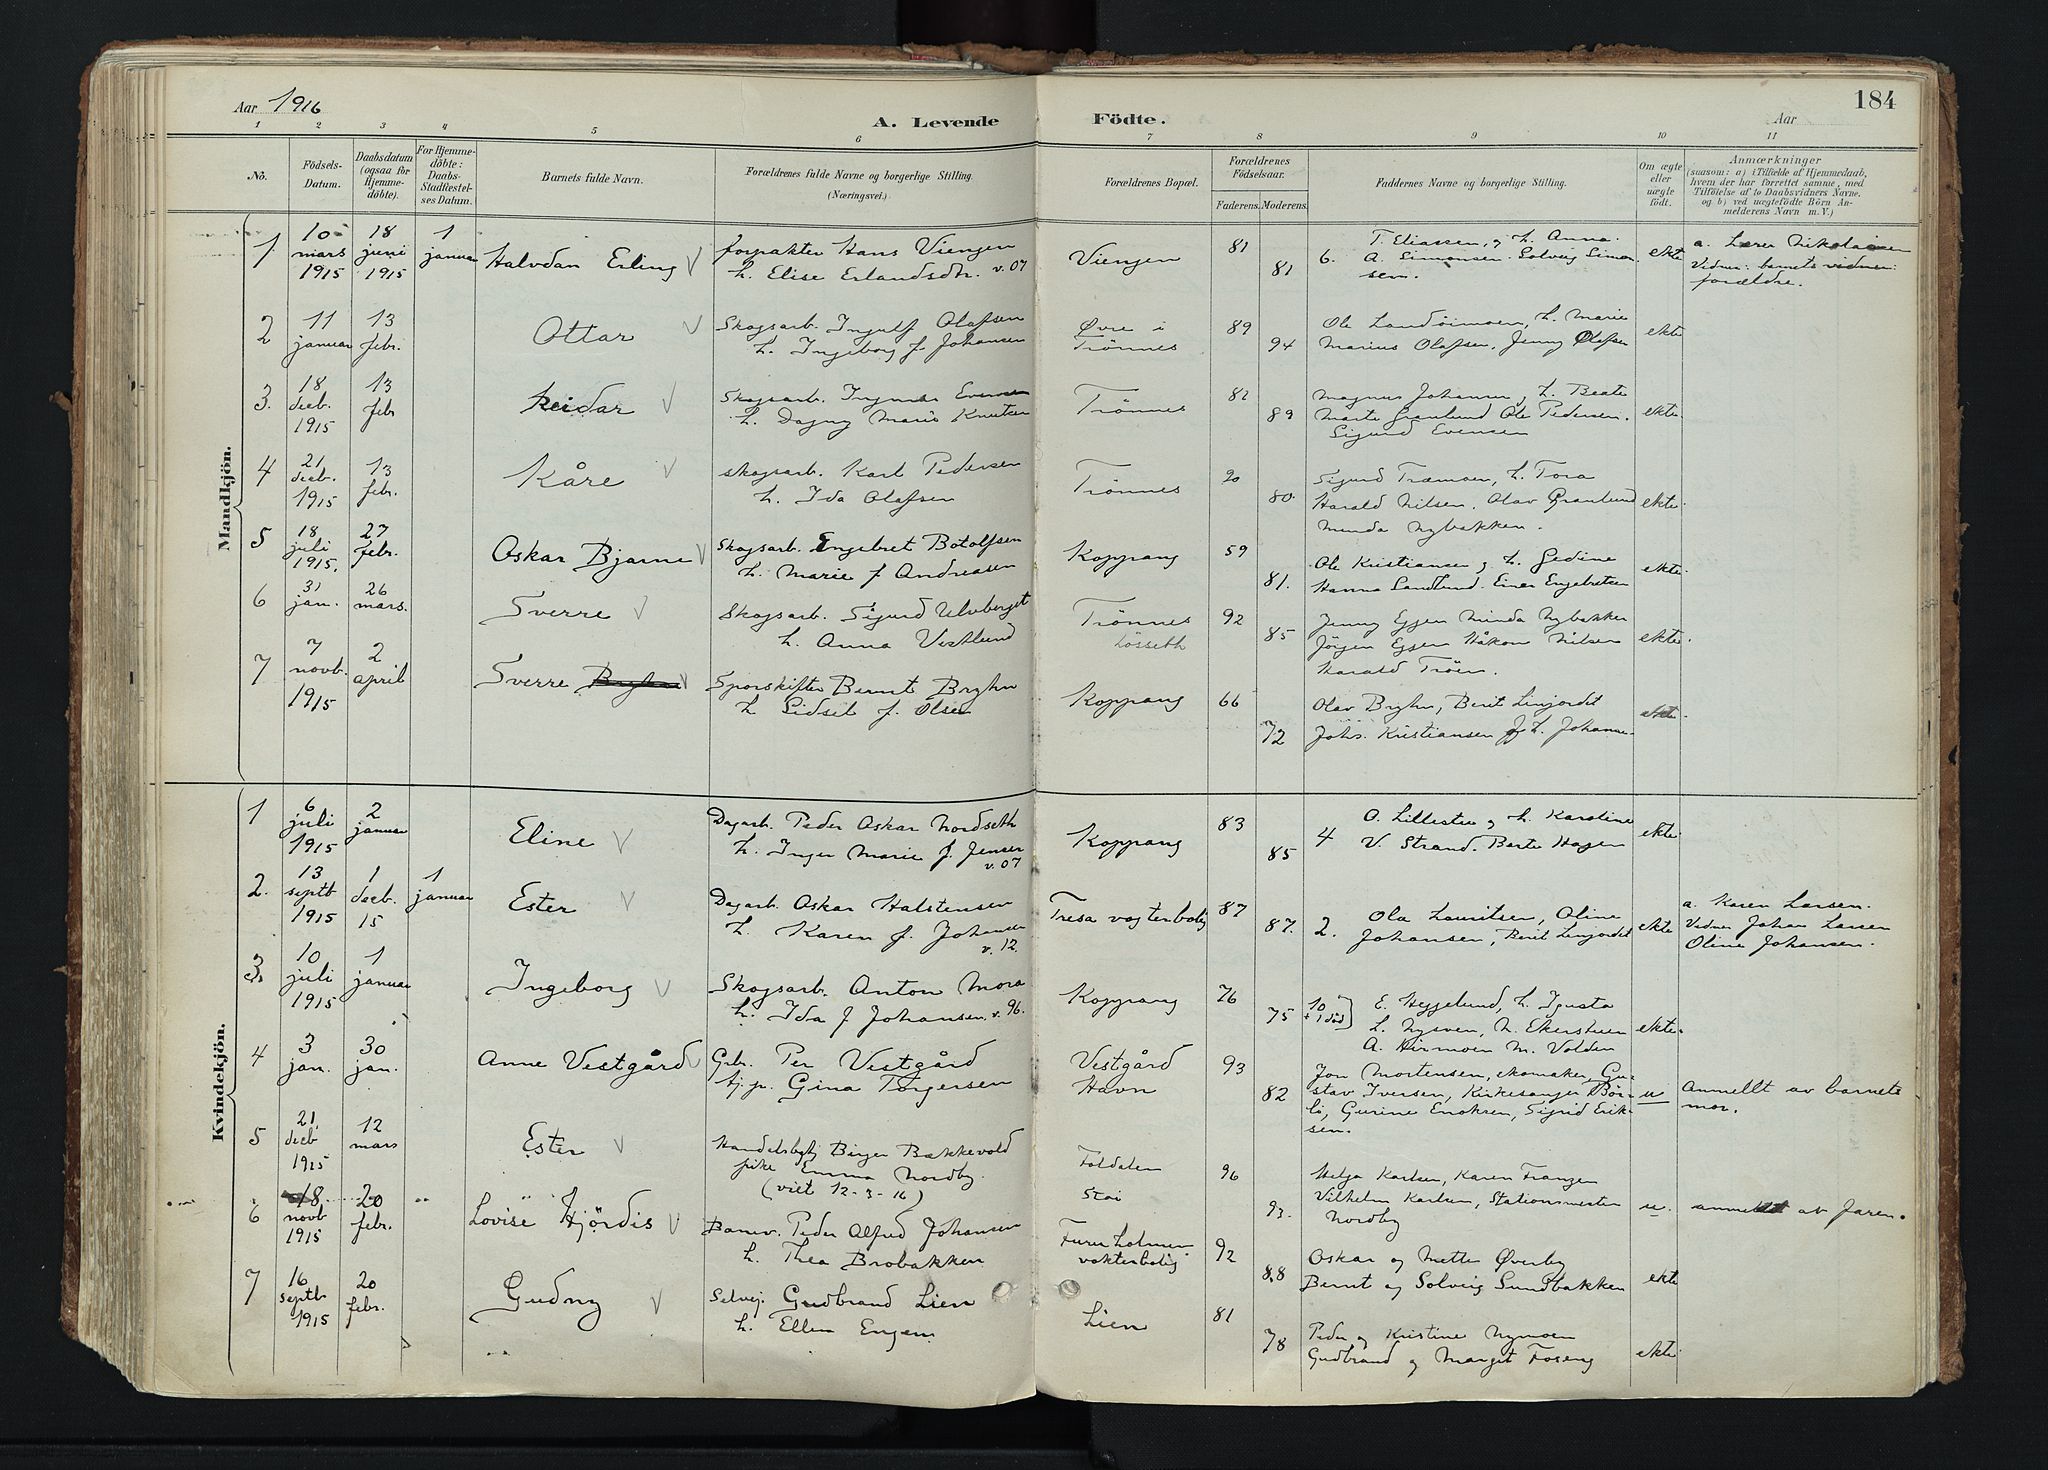 Aar 1916
A. Levende Födte.
Aar
184
1 2 3 4 5 6 7 8 9 10 11
No.
Födsels-Datum.
Daabsdatum (ogsaa for Hjemme-döbte).
For Hjemme-döbte: Daabs-Stadfæstel-ses Datum.
Barnets fulde Navn.
Forældrenes fulde Navne og borgerlige Stilling. (Næringsvei.)
Forældrenes Bopæl.
Forældrenes Födselsaar.
Faderens. Moderens.
Faddernes Navne og borgerlige Stilling.
Om ægte eller uægte födt.
Anmærkninger
(saasom: a) i Tilfælde af Hjemmedaab,
hvem der har forrettet samme, med
Tilföielse af to Daabsvidners Navne.
og b) ved uægtefödte Börn An-
melderens Navn m. V.)
Mandkjön.
1. 10 mars 1915 18 juni 1915 1 januar Halvdan Erling
forpakter Hans Viengen
h. Elise Erlandsdtr. v. 07
Viengen 81 81 6.
T. Eliassen, og h. Anna.
A. Simonsen. Solveig Simon
sen.
ekte
a. Lærer Nikolaisen
Vidner: barnets
forældre.
2 11 januar 13 febr. Ottar
Skogsarb. Ingulf Olafsen
h. Ingeborg f. Johansen
Øvre i Trönnes 89 94
Ole Landöimoen, h. Marie
Marius Olafsen, Jenny Olafsen
ekte
3. 18 decb. 1915 13 febr Reidar
Skogsarb. Ingvar Evensen
h. Dagny Marie Knutsen
Trönnes 82 89
Magnus Johansen, h. Beate
Marte Granlund Ole Pedersen.
Sigurd Evensen
ekte.
4 21 decb. 1915 13 febr. Kåre
skogsarb. Karl Pedersen
h. Ida Olafsen
Trönnes 90 80.
Sigurd Træmoen, h. Tora
Harald Nilsen. Olav Granlund
Minda Nybakken.
ekte.
5 18 juli 1915. 27 febr. Oskar Bjarne
Skogsarb. Engebret Botolfsen
h. Marie f Andreasen
Koppang 59 81.
Ole Kristiansen og h. Gedine
Hanna Sandlund. Einar Engebretsen
ekte.
6 31 jan. 26 mars. Sverre
Skogsarb. Sigurd Ulvberget
h. Anna Vestlund
Trönnes
Lösseth
92 85
Jenny Eggen Minda Nybakken
Jörgen Eggen Håkon Nilsen
Harald Tröen.
ekte.
7 7 novb. 1915 2 april Sverre
Sporskifter Bernt Bryhn
h Sidsel f. Olsen
Koppang 66 72
Olav Bryhn, Berit Linjordet
Johs. Kristiansen og h. Johanne.
ekte.
Kvindekjön.
1 6 juli 1915 2 januar Eline
Dagarb. Peder Oskar Nordseth
h. Inger Marie f. Jensen
v. 07
Koppang 83 85 4
O. Lillestu og h. Karoline
V. Strand. Berte Hagen
ekte
2. 13 septb 1915 1 decb. 15 1 januar Ester
Dagarb. Oskar Halstensen
h. Karen f. Johansen
v. 12.
Tresa vogterbolig 87 87. 2.
Ola Lauritsen, Oline
Johansen, Berit Linjordet
ekte
a. Karen Larsen.
Vidner Johan Larsen
Oline Johansen.
3. 10 juli 1915 1 januar Ingeborg
Skogsarb. Anton Mora
h. Ida f Johansen. v. 96.
Koppang 76 75 10 + 1 död
E. Heggelund, h. Igusta
L. Nysven, N. Ekerstuen
A. Hirmoen M. Volden
ekte.
4 3 jan. 30 jan. Anne Vestgård
Grbr. Per Vestgård
tj. p. Gina Torgersen
Vestgård
Havn
93 82
Jon Mortensen, skomaker, Gu-
stav Iversen, Kirkesanger Bör-
li, Gurine Enoksen, Sigrid Erik-
sen.
u
Anmeldt av barnets
mor.
5 21. decb 1915 12 mars Ester
Handelsbetj Birger Bækkevold
pike Emma Nordby.
(viet 12-3-16)
Foldalen
Stai
96 93.
Helga Karlsen, Karen Frangen
Vilhelm Karlsen, Stationsmester
Nordby
u.
anmeldt av faren.
6 18. novb 1915 20 febr. Lovise Hjördis
Banev. Peder Alfred Johansen
h. Thea Brobakken
Furuholmen vokterbolig 92 88
Oskar og Mette Øverby
Bernt og Solveig Sundbakken
ekte
7 16 septb 1915 20 febr. Gudny
Selvej. Gudbrand Lien
h. Ellen Engen
Lien 81 78
Peder og Kristine Nymoen
Gudbrand og Margit Foseng
ekte